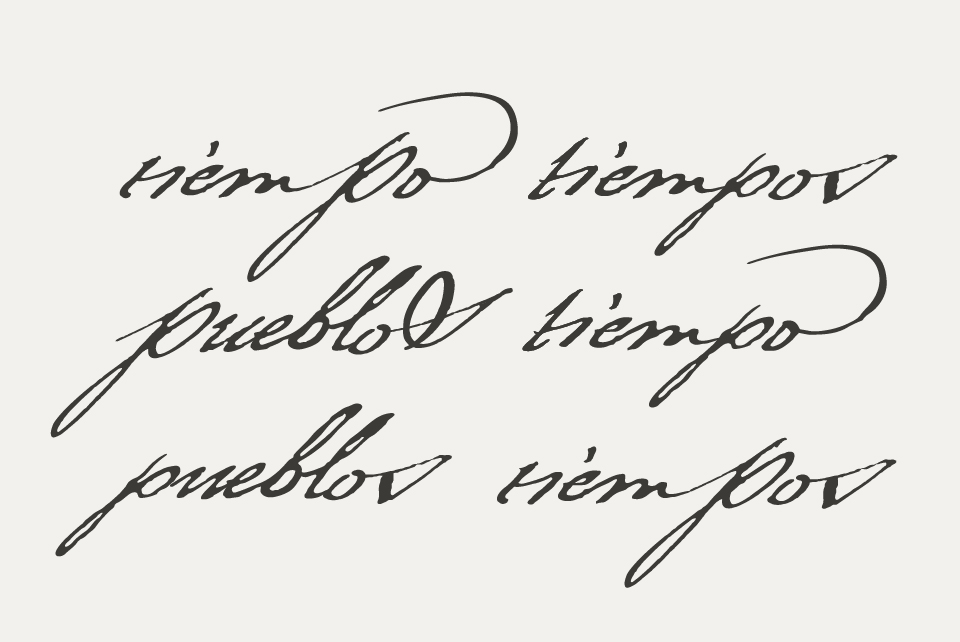 tiempo tiempos
pueblos tiempo
pueblos tiempos